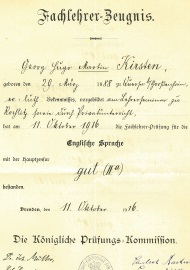 Fachlehrer-Zeugnis.
Georg Hugo Martin Kirsten
geboren den 29. März 1888 zu
ev.-luth. Bekenntnisses, vorgebildet
Rochlitz sowie durch Privatunterricht,
hat am 11. Oktober 1916 die Fachlehrer-Prüfung für die
Englische Sprache
mit der Hauptzensur
gut (IIa)
bestanden.
Dresden, den 11. Oktober 1916.
Die Königliche Prüfungs-Kommission.